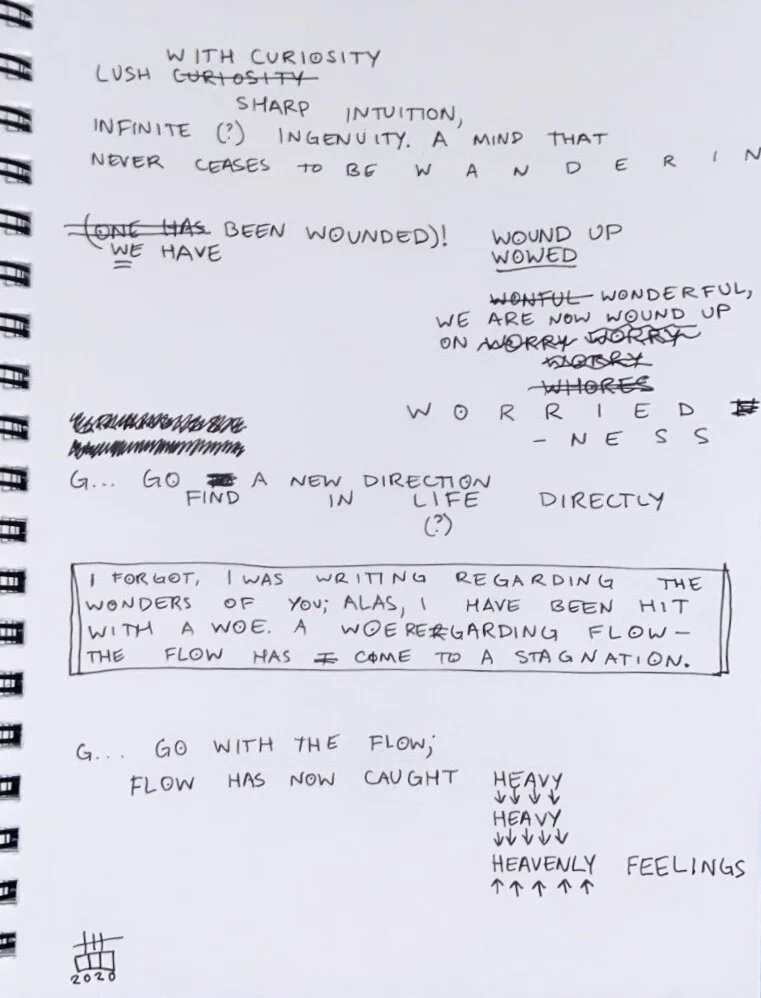 WITH CURIOSITY
LUSH CURIOSITY
SHARP INTUITION,
INFINITE (?) INGENUITY. A MIND THAT
NEVER CEASES TO BE W A N D E R I N
(ONE HAS BEEN WOUNDED)! WOUND UP
WE HAVE WOWED
WONFUL WONDERFUL,
WE ARE NOW WOUND UP
ON WORRY WORRY
WORRY
WHORES
W O R R I E D
- N E S S
G... GO A NEW DIRECTION
FIND IN LIFE DIRECTLY
(?)
I FORGOT, I WAS WRITING REGARDING THE
WONDERS OF YOU; ALAS, I HAVE BEEN HIT
WITH A WOE. A WOE REGARDING FLOW-
THE FLOW HAS I COME TO A STAGNATION.
G... GO WITH THE FLOW;
FLOW HAS NOW CAUGHT HEAVY
↓↓↓↓
HEAVY
↓↓↓↓↓
HEAVENLY FEELINGS
↑↑↑↑↑
2020